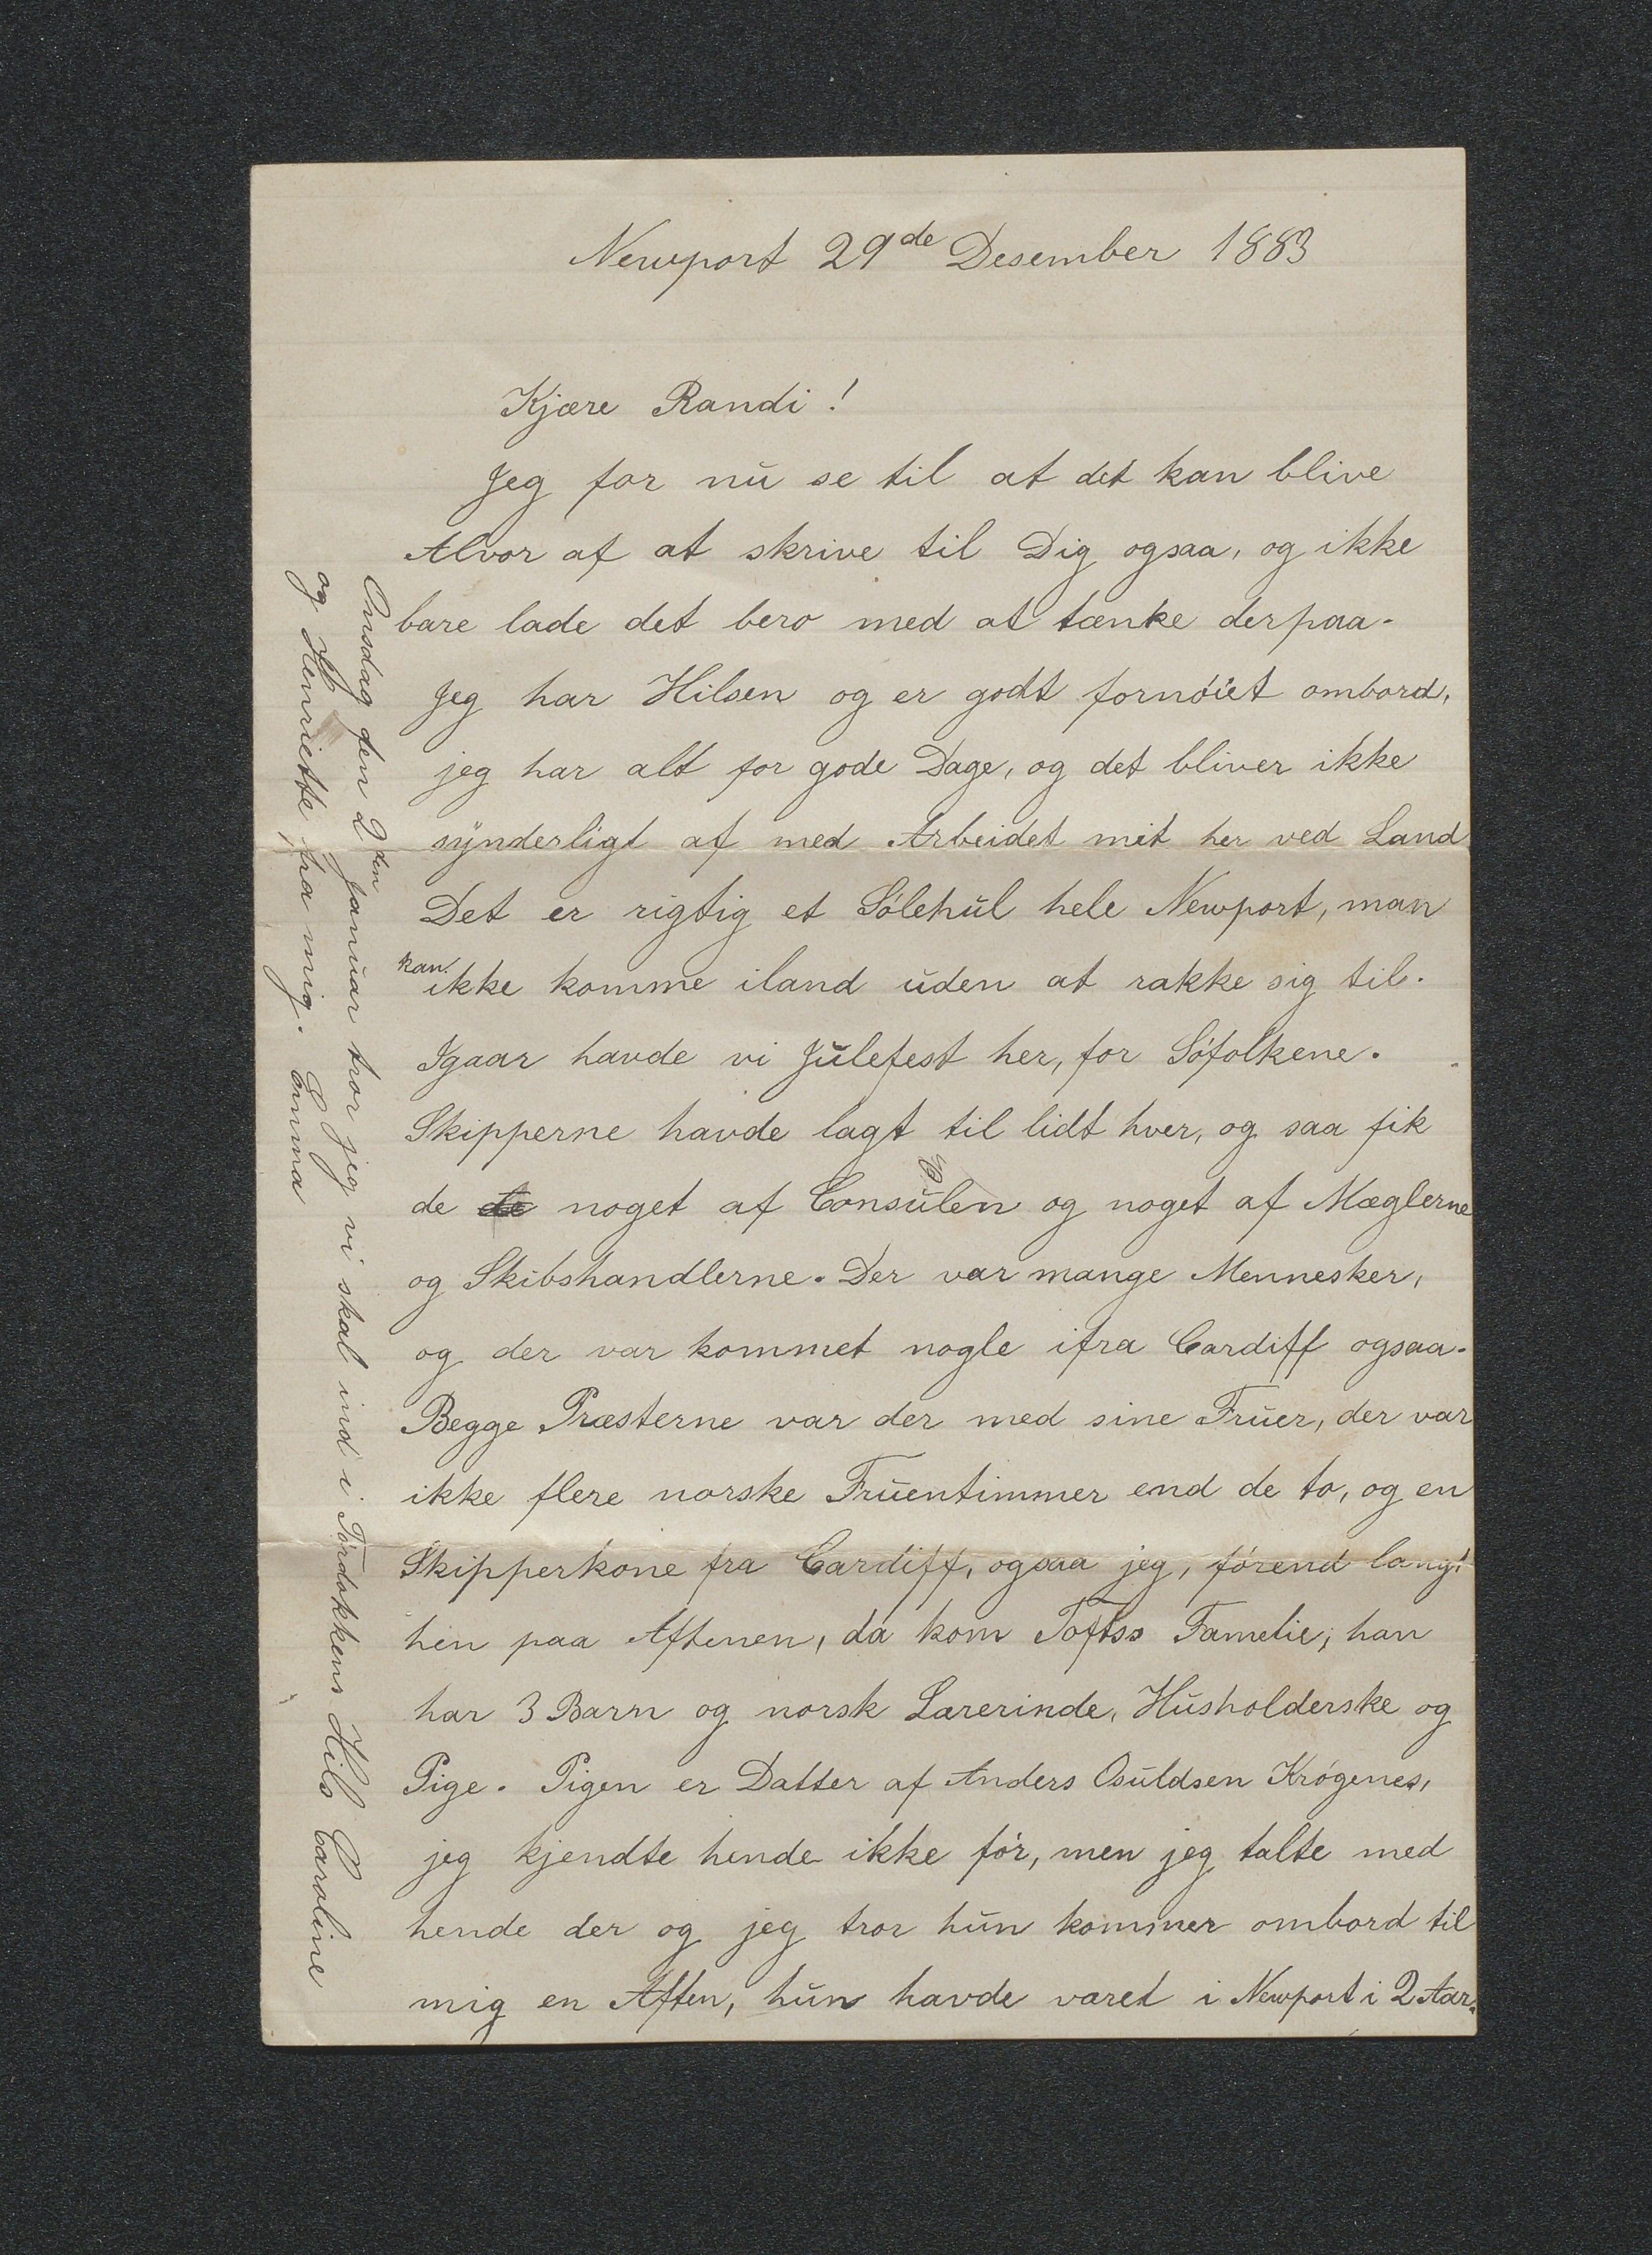 Newport 29de Desember 1883
Kjære Randi!
Jeg for nu se til at det kan blive
Alvor af at skrive til Dig ogsaa, og ikke
bare lade det bero med at tænke derpaa.
Jeg har Hilsen og er godt fornöiet ombord,
jeg har alt for gode Dage, og det bliver ikke
synderligt af med Arbeidet mit her ved Land
Det er rigtig et Sölehul hele Newport, man
kan ikke komme iland uden at rakke sig til.
Igaar havde vi Julefest her, for Söfolkene.
Skipperne havde lagt til lidt hver, og saa fik
de de noget af Consulen og noget af Mæglerne
og Skibshandlerne. Der var mange Mennesker,
og der var kommet nogle ifra Cardiff ogsaa.
Begge Præsterne var der med sine Fruer, der var
ikke flere norske Fruentimmer end de to, og en
Skipperkone fra Cardiff, ogsaa jeg, förend langt
hen paa Aftenen, da kom Toftss Famelie; han
har 3 Barn og norsk Lærerinde, Husholderske og
Pige. Pigen er Datter af Anders Osuldsen Krögenes,
jeg kjendte hende ikke för, men jeg talte med
hende der og jeg tror hun kommer ombord til
mig en Aften, hun havde været i Newport i 2 Aar.
Onsdag den 2den Januar tror jeg vi skal ind i Tördokken Hils Caroline
og Henriette, fra mig. Emma